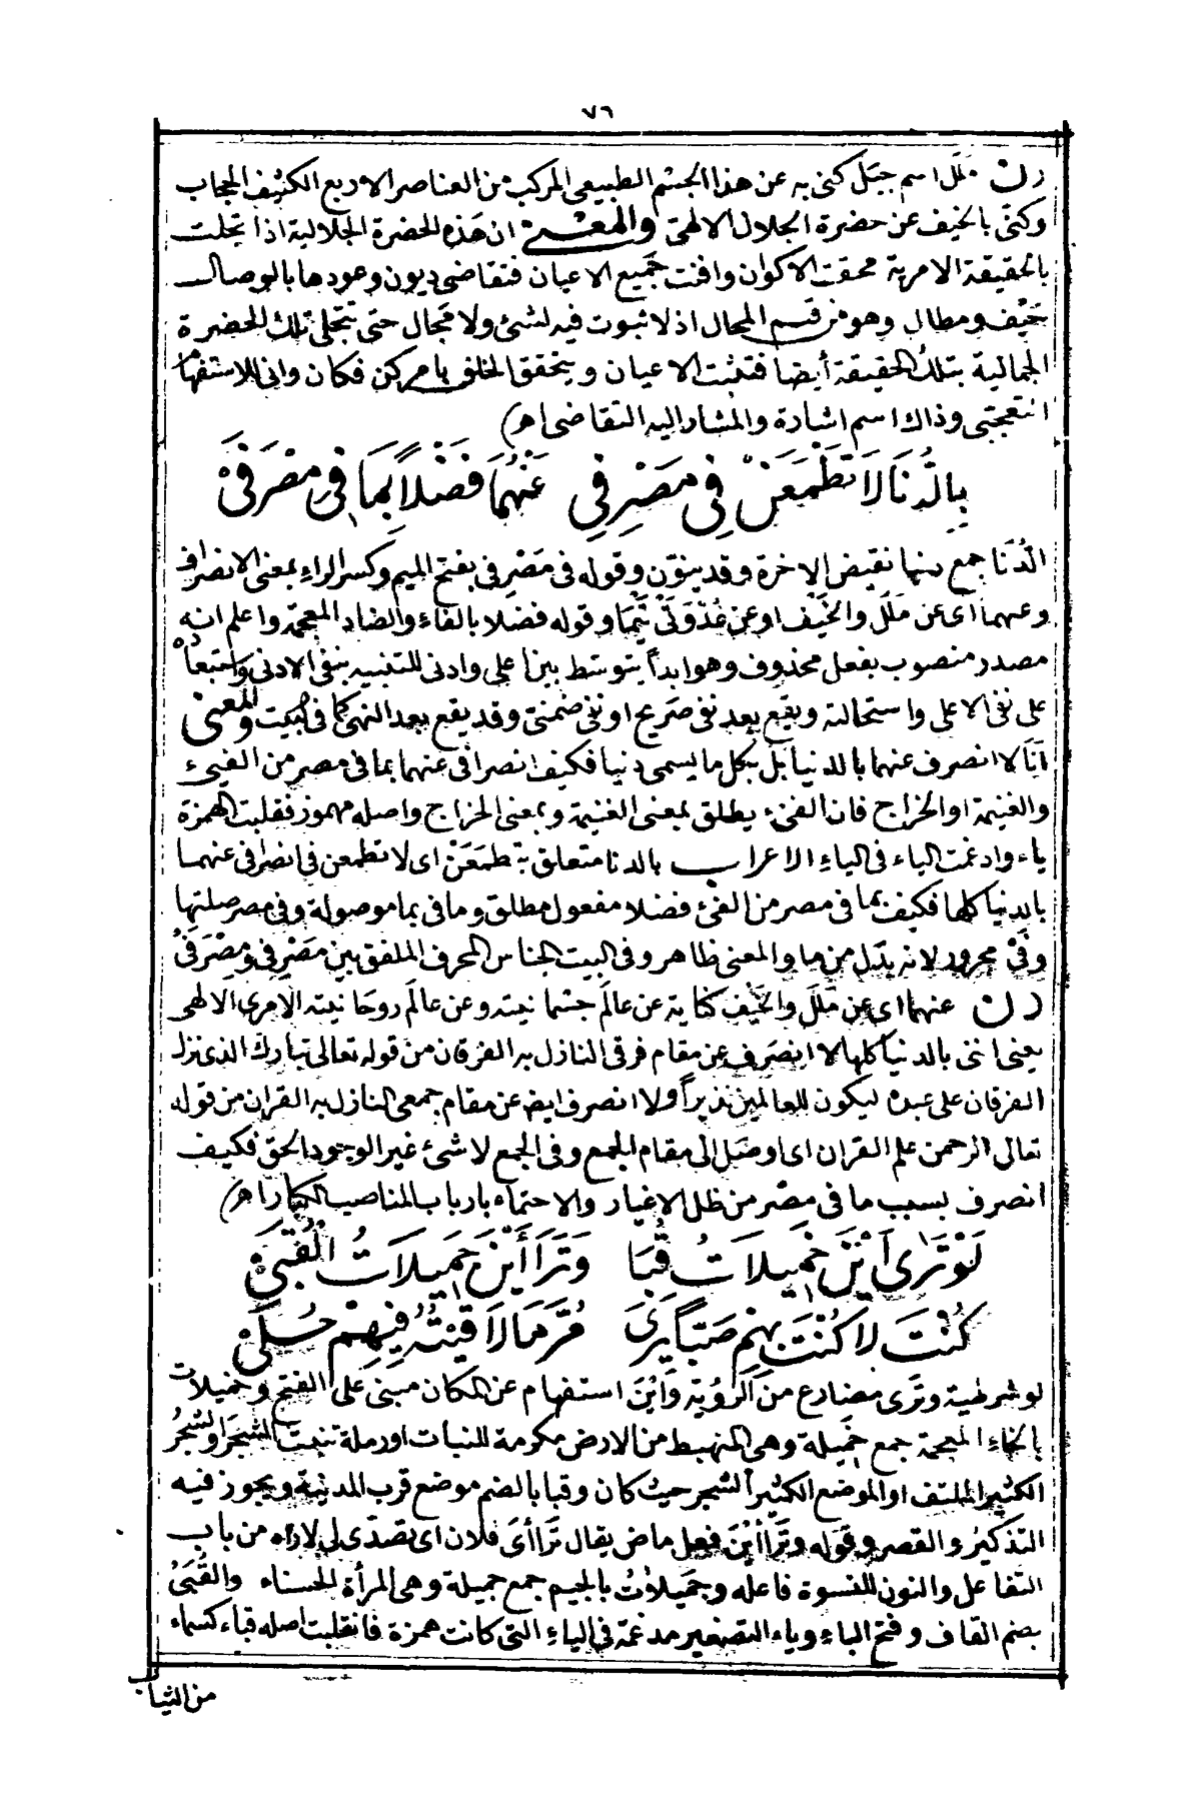 ٧٦
(ن) ملل اسم جبل كنى به عن هذا الجسم الطبيعى المركب من العناصر الاربع الكثيف الحجاب
وكنى بالخيف عن حضرة الجلال الالهى والمعنى ان هذه الحضرة الجلالية اذا تجلت
بالحقيقة الامرية محقت الاكوان وافنت جميع الاعيان فتقاضى ديون وعودها بالوصال
حيف ومطال وهو من قسم المحال اذ لا ثبوت فيه لشئ ولا مجال حتى تتجلى تلك الحضرة
الجمالية بتلك الحقيقة أيضا فتثبت الاعيان ويتحقق الخلق بامر كن فكان وانى للاستفهام
التعجبى وذاك اسم اشارة والمشار اليه التقاضى اه)
بِالدُّنَا لَا تَطْمَعَنْ فِى مَصْرِفِى عَنْهُمَا فَضْلًا بِمَا فِى مِصْرَ فَىْ
الدُنَا جمع دنيا نقيض الاخرة وقد ينوّن وقوله فى مَصْرِفى بفتح الميم وكسر الراء بمعنى الانصراف
وعنهما اى عن مَلَل والخَيْف او عن عُدْوَتَىْ تَيْمَا وقوله فضلا بالفاء والضاد المعجمة واعلم انه
مصدر منصوب بفعل محذوف وهو ابداً يتوسط بين اعلى وادنى للتنبيه بنفى الادنى واستبعاده
على نفى الاعلى واستحالته ويقع بعد نفى صريح او نفى ضمنى وقد يقع بعد النهى كما فى البيت والمعنى
اَنَا لا انصرف عنهما بالدنيا بل بكل ما يسمى دنيا فكيف انصرافى عنهما بما فى مصر من الفىء
والغنيمة او الخراج فان الفىء يطلق بمعنى الغنيمة وبمعنى الخراج واصله مهموز فقلبت الهمزة
ياء وادغمت الياء فى الياء الاعراب بالدنا متعلق بتطمَعَنْ اى لا تطمعن فى انصرافى عنهما
بالدنيا كلها فكيف بما فى مصر من الفئ فضلا مفعول مطلق وما فى بما موصولة وفى مصر صلتها
وفَىْ مجرور لانه بدل من ما والمعنى ظاهر وفى البيت الجناس المحرف الملفق بين مَصْرِفى ومِصْرَ فَىْ
(ن) عنهما اى عن مَلَل والخَيْف كناية عن عالم جسمانيته وعن عالم روحانيته الامرى الالهى
يعنى اننى بالدنيا كلها لا انصرف عن مقام فرقى النازل به الفرقان من قوله تعالى تبارك الذى نزل
الفرقان على عبده ليكون للعالمين نذيراً ولا انصرف ايضا عن مقام جمعى النازل به القران من قوله
تعالى الرحمن علم القران اى اوصل الى مقام الجمع وفى الجمع لا شئ غير الوجود الحق فكيف
انصرف بسبب ما فى مصر من ظل الاغيار والاحتماء بارباب المناصب الكبار اه)
لَوْ تَرَى اَيْنَ خَمِيلَاتُ قُبَا وَتَرَاأَيْنَ جَمِيلَاتُ القُبَىْ
كُنْتَ لا كُنْتَ بِهِمْ صَبًّا يَرَى مُرَّ مَا لَاقَيْتُهُ فِيهِمْ حُلَىْ
لو شرطية وترَى مضارع من الرؤية وَاَيْنَ استفهام عن المكان مبنى على الفتح وخميلات
بالخاء المعجمة جمع خَمِيلة وهى المنهبط من الارض مكرمة للنبات او رملة تنبت الشجَر والشجَرُ
الكثير الملتف او الموضع الكثير الشجر حيث كان وقبا بالضم موضع قرب المدينة ويجوز فيه
التذكير والقصر وقوله وتَرَاأَيْنَ فعل ماض يقال تَرَاأَى فلان اى تصدّى لى لاراه من باب
التفاعل والنون للنسوة فاعله وجَمِيلاتُ بالجيم جمع جميلة وهى المرأة الحسناء والقُبَىُ
بضم القاف وفتح الباء وياء التصغير مدغمة فى الياء التى كانت همزة فانقلبت اصله قباء كسماء
من الثياب